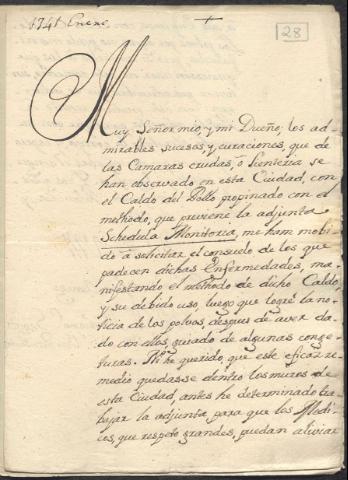 1741 Enere
28
Muy Señor mio, y mi Dueño; los ad-
mirables sucesos, y curaciones, que de
las Camaras crudas, ò lienteria se
han observado en esta Ciudad, con
el Caldo del Pollo propinado con el
methodo, que previene la adjunta
Schedula Monitoria, me han movi-
do â solicitar el consuelo de los que
padecen dichas enfermedades, ma-
nifestando el methodo de dicho Caldo,
y su debido uso luego que logrè la no-
ticia de los polvos, despues de aver da-
do con ellos, guiado de algunas conge-
turas. Ni he querido, que este eficaz re-
medio quedasse dentro los muros de
esta Ciudad, antes he determinado tra-
bajar la adjunta para que los Medi-
cos, que respeto grandes, puedan aliviar